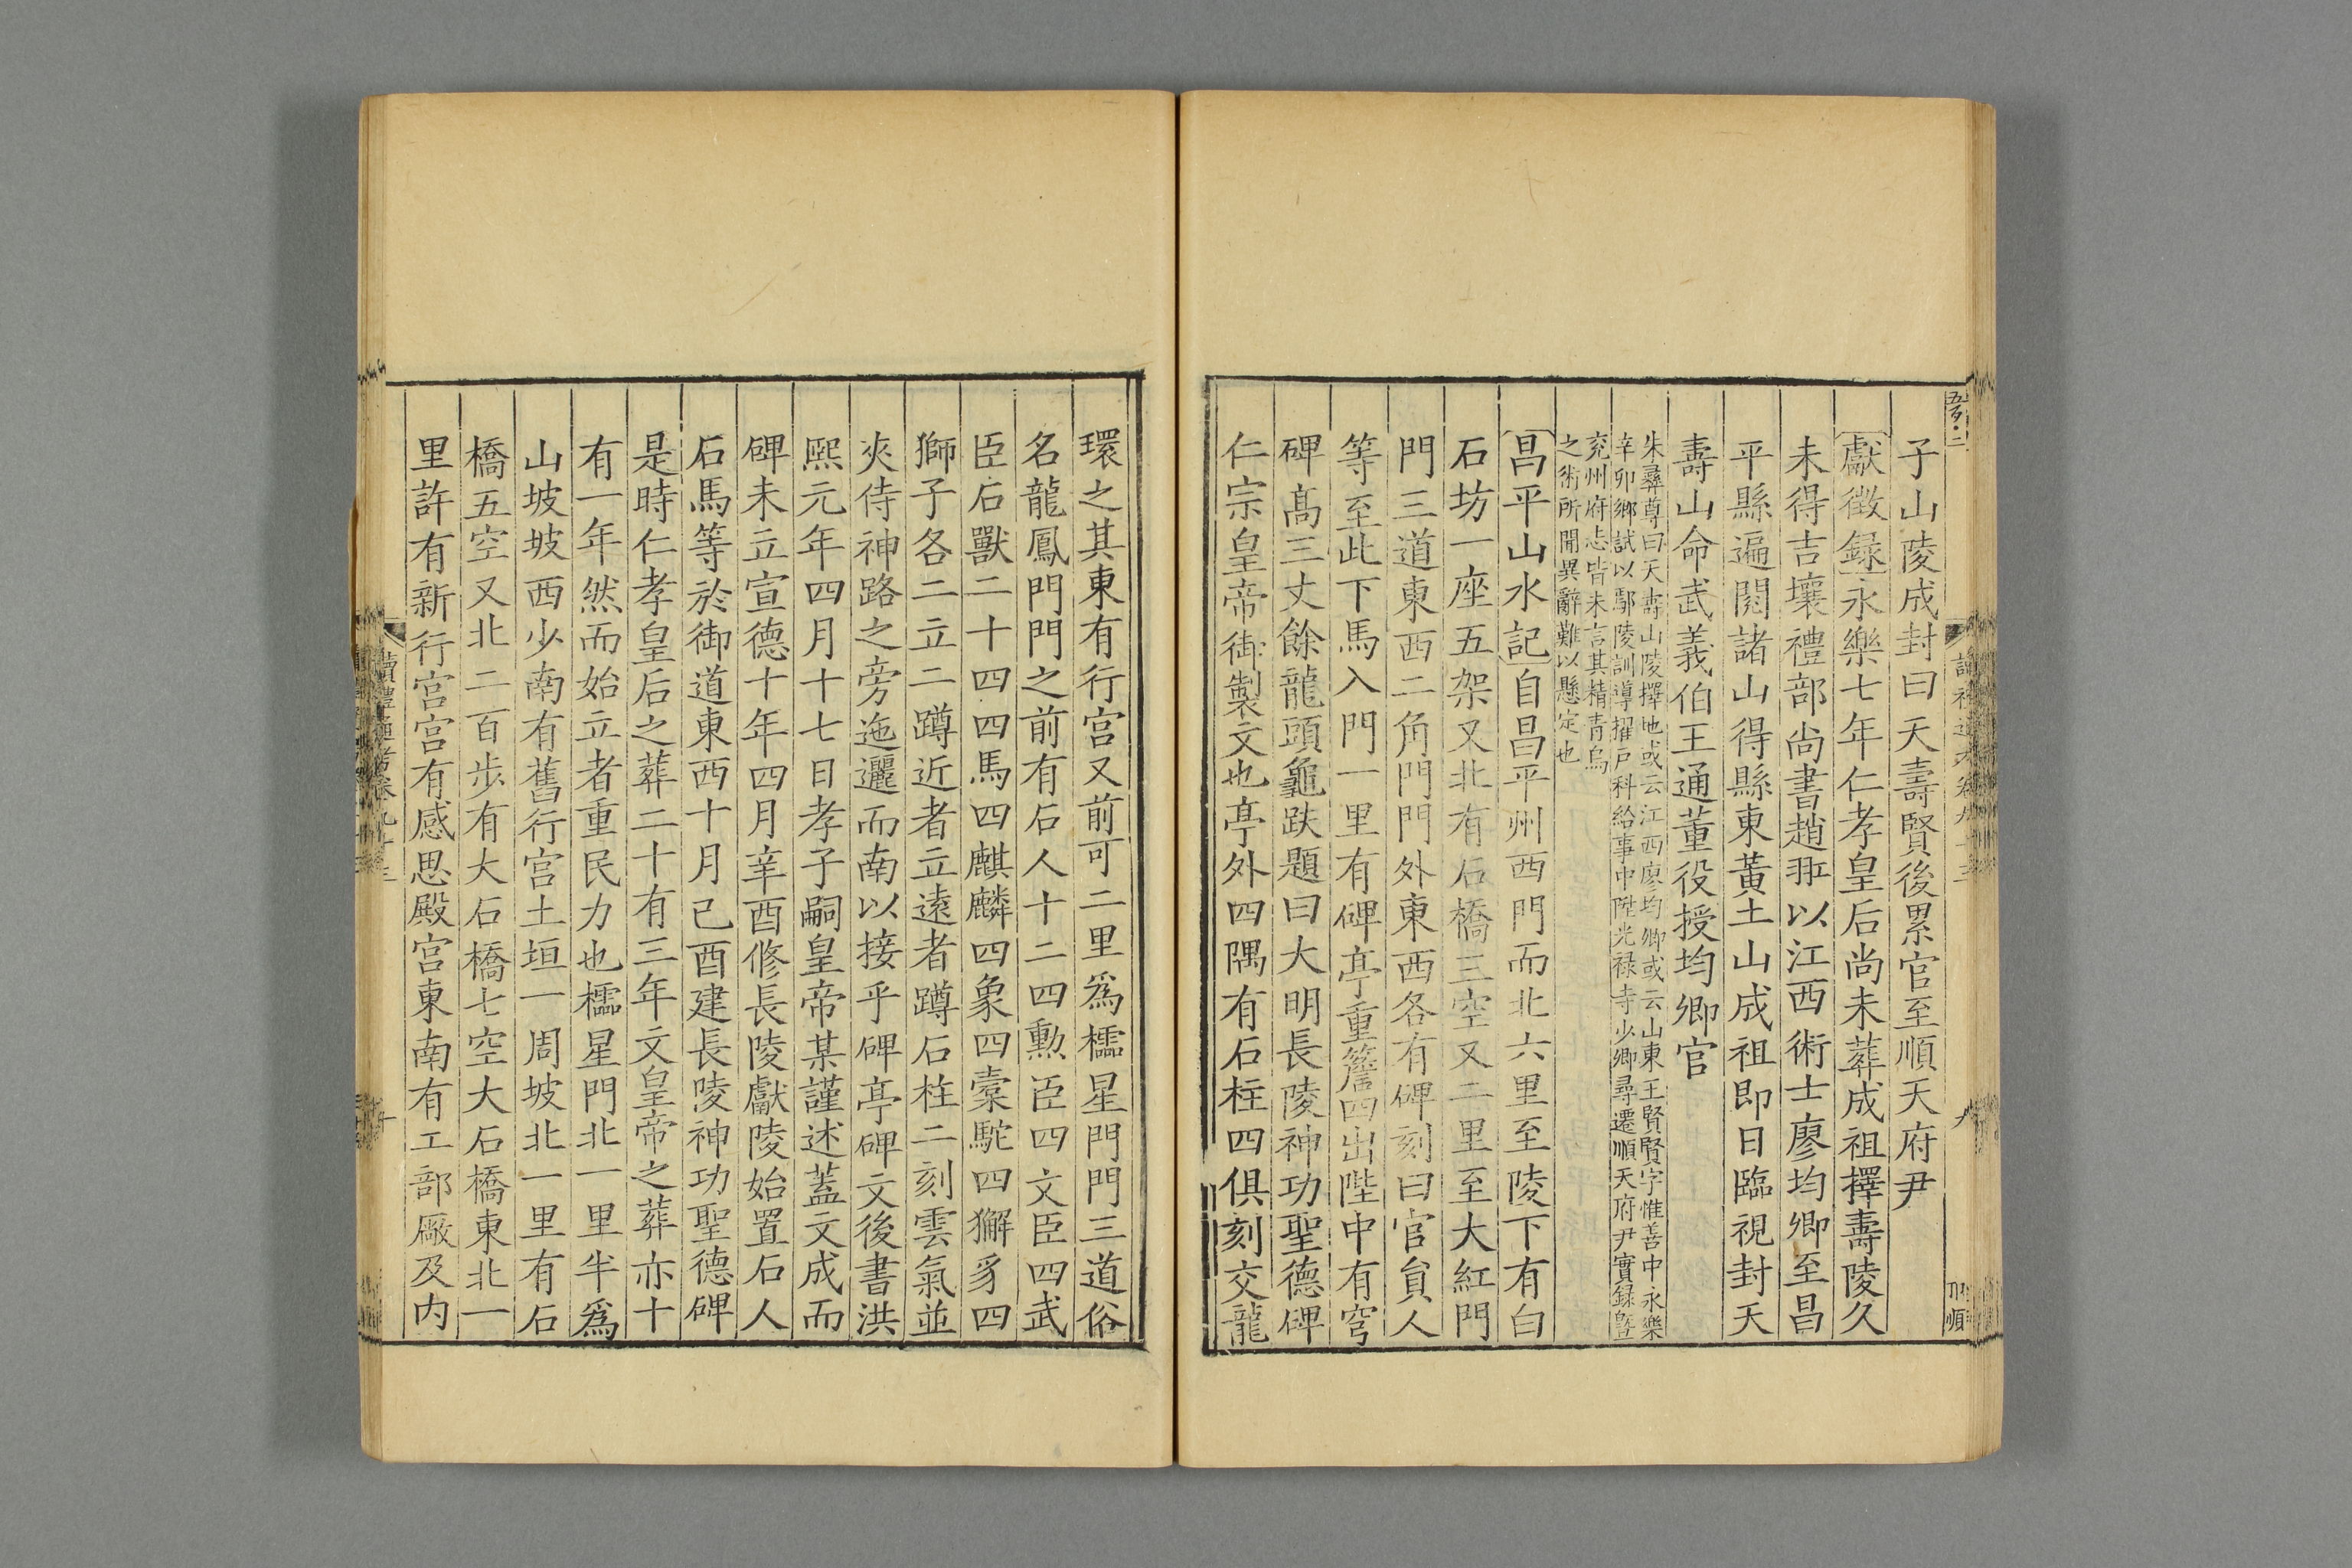 子山陵成封曰天壽賢後累官至順天府尹
獻徵録永樂七年仁孝皇后尚未葬成祖擇壽陵久
未得吉壤禮部尚書趙羾以江西術士廖均卿至昌
平縣遍閱諸山得縣東黃土山成祖即日臨視封天
壽山命武義伯王通董役授均卿官
朱彞尊曰天壽山陵擇地或云江西廖均卿或云山東王賢賢字惟善中永樂
辛卯鄉試以鄢陵訓導擢戸科給事中陞光禄寺少卿尋遷順天府尹實録曁
兖州府志皆未言其精青烏
之術所聞異辭難以懸定也
昌平山水記自昌平州西門而北六里至陵下有白
石坊一座五架又北有石橋三空又二里至大紅門
門三道東西二角門門外東西各有碑刻曰官貟人
等至此下馬入門一里有碑亭重簷四出陛中有穹
碑髙三丈餘龍頭龜趺題曰大明長陵神功聖德碑
仁宗皇帝御製文也亭外四隅有石柱四俱刻交龍
環之其東有行宫又前可二里爲櫺星門門三道俗
名龍鳳門門之前有石人十二四勲臣四文臣四武
臣石獸二十四四馬四麒麟四象四槖駝四獬豸四
獅子各二立二蹲近者立遠者蹲石柱二刻雲氣並
夾侍神路之旁迤邐而南以接乎碑亭碑文後書洪
熙元年四月十七日孝子嗣皇帝某謹述蓋文成而
碑未立宣德十年四月辛酉修長陵獻陵始置石人
石馬等於御道東西十月己酉建長陵神功聖德碑
是時仁孝皇后之葬二十有三年文皇帝之葬亦十
有一年然而始立者重民力也櫺星門北一里半爲
山坡坡西少南有舊行宫土垣一周坡北一里有石
橋五空又北二百步有大石橋七空大石橋東北一
里許有新行宫宫有感思殿宫東南有工部厰及内